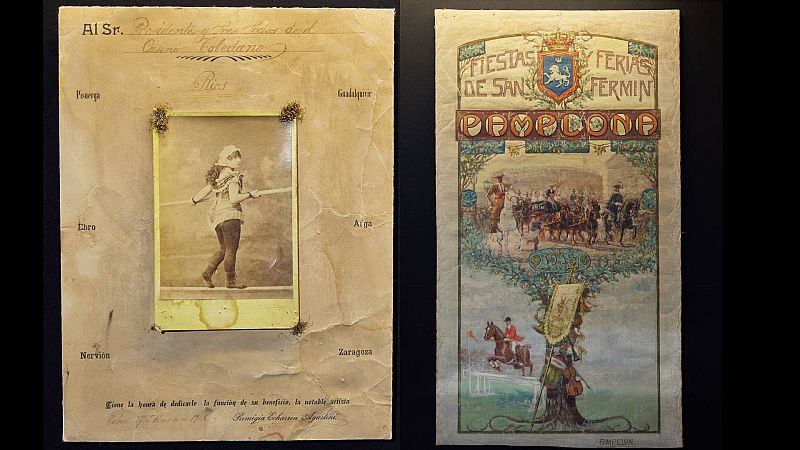 Al Sr. Presidente y Sres Socios de el
Casino Toledano
Rios
Pisuerga
Guadalquivir
Ebro
Arga
Nervión
Zaragoza
Tiene la honra de dedicarle la función de su beneficio, la notable artista
Remigia Echarren Agustini
FIESTAS Y FERIAS
DE SAN FERMIN
PAMPLONA
POMPELON